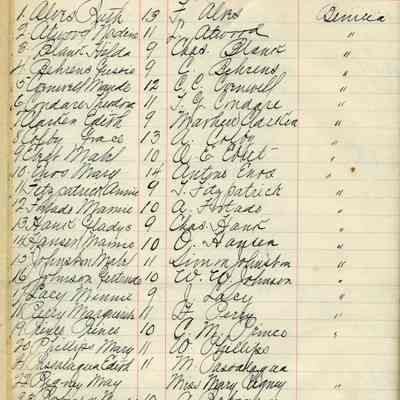 1. Alvis Ruth 13 F. Alvis Benicia
2. Atwood Modena 11 Atwood "
3. Blank Hilda 9 Chas. Blank "
4. Behrens Gussie 9 C. Behrens "
5. Cornwell Maude 12 C. C. Cornwell "
6. Condare Theodora 11 T. G. Condare "
7. Clarken Edith 9 Mathew Clarken "
8. Colby Grace 13 A. Colby "
9. Mabl 10 A. E. "
10. Enos Mary 14 Antone Enos "
11. Fitzpatrick Annie 9 T. Fitzpatrick "
12. Frtado Mamie 10 A. Frtado "
13. Hank Gladys 9 Chas. Hank "
14. Hansen Mamie 10 O. Hansen "
15. Johnston Mabl 11 Simon Johnston "
16. Johnson Gertrude 10 W. W. Johnson "
17. Lacy Minnie 9 J. Lacy "
18. Perry Marguerite 11 F. Perry "
19. Prince 10 G. M. "
20. Phillips Mary 11 W. Phillips "
21. Edith 11 M. "
22. May Mrs Mary "
23. 10 A.